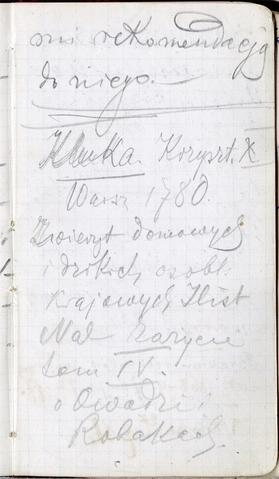 mi rekomendacją
do niego.
Kluka. Krzyszt. X
Warsz 1780.
Zwierzt domowych
i dzikich, osobl.
Krajowych Hist
Nat. 
tom IV.
o Owadz. i
Robakach